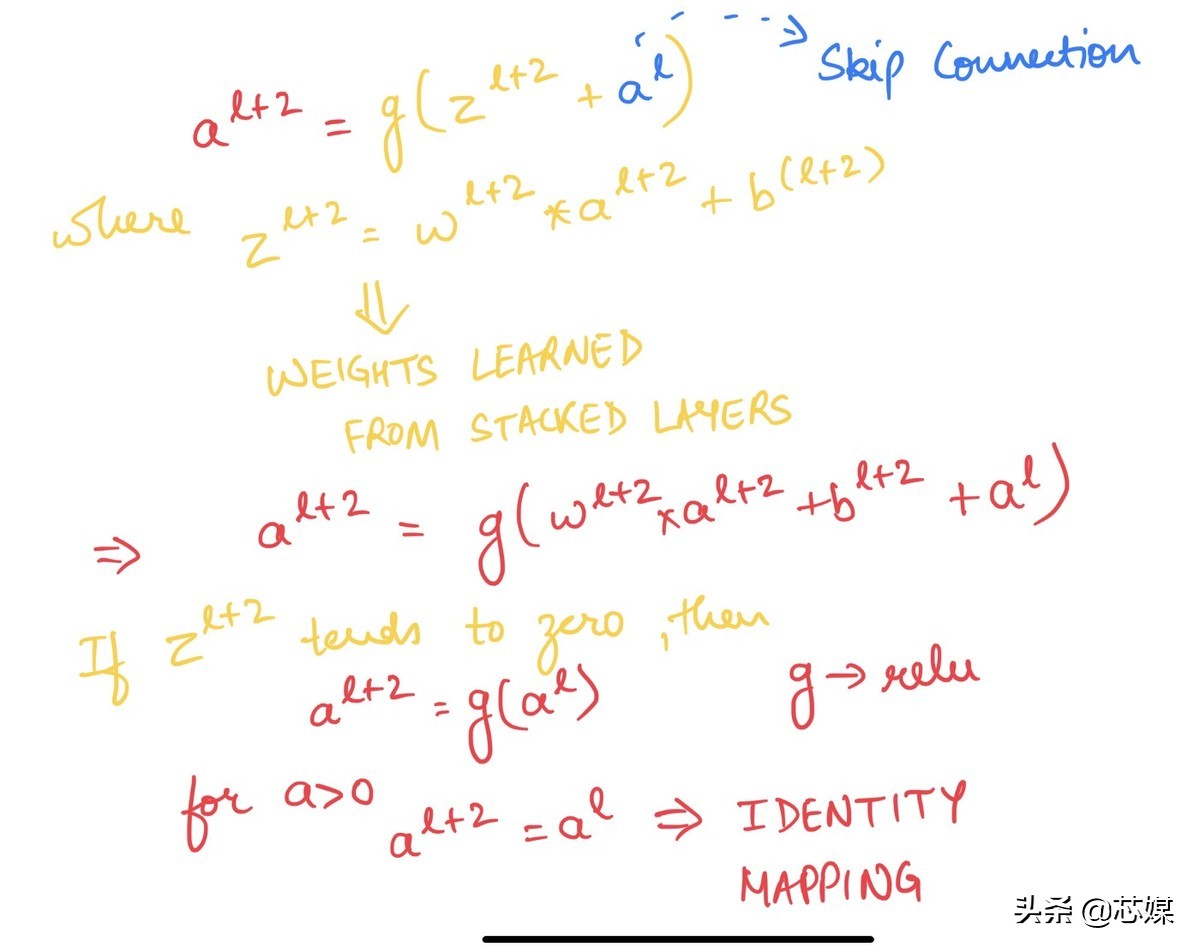 a^{l+2} = g(z^{l+2} + a^l) Skip Connection
where z^{l+2} = w^{l+2} * a^{l+2} + b^{(l+2)}
⇓
WEIGHTS LEARNED
FROM STACKED LAYERS
⇒ a^{l+2} = g(w^{l+2} * a^{l+2} + b^{l+2} + a^l)
If z^{l+2} tends to zero, then
a^{l+2} = g(a^l) g → relu
for a>0 a^{l+2} = a^l ⇒ IDENTITY
MAPPING
头条 @芯媒